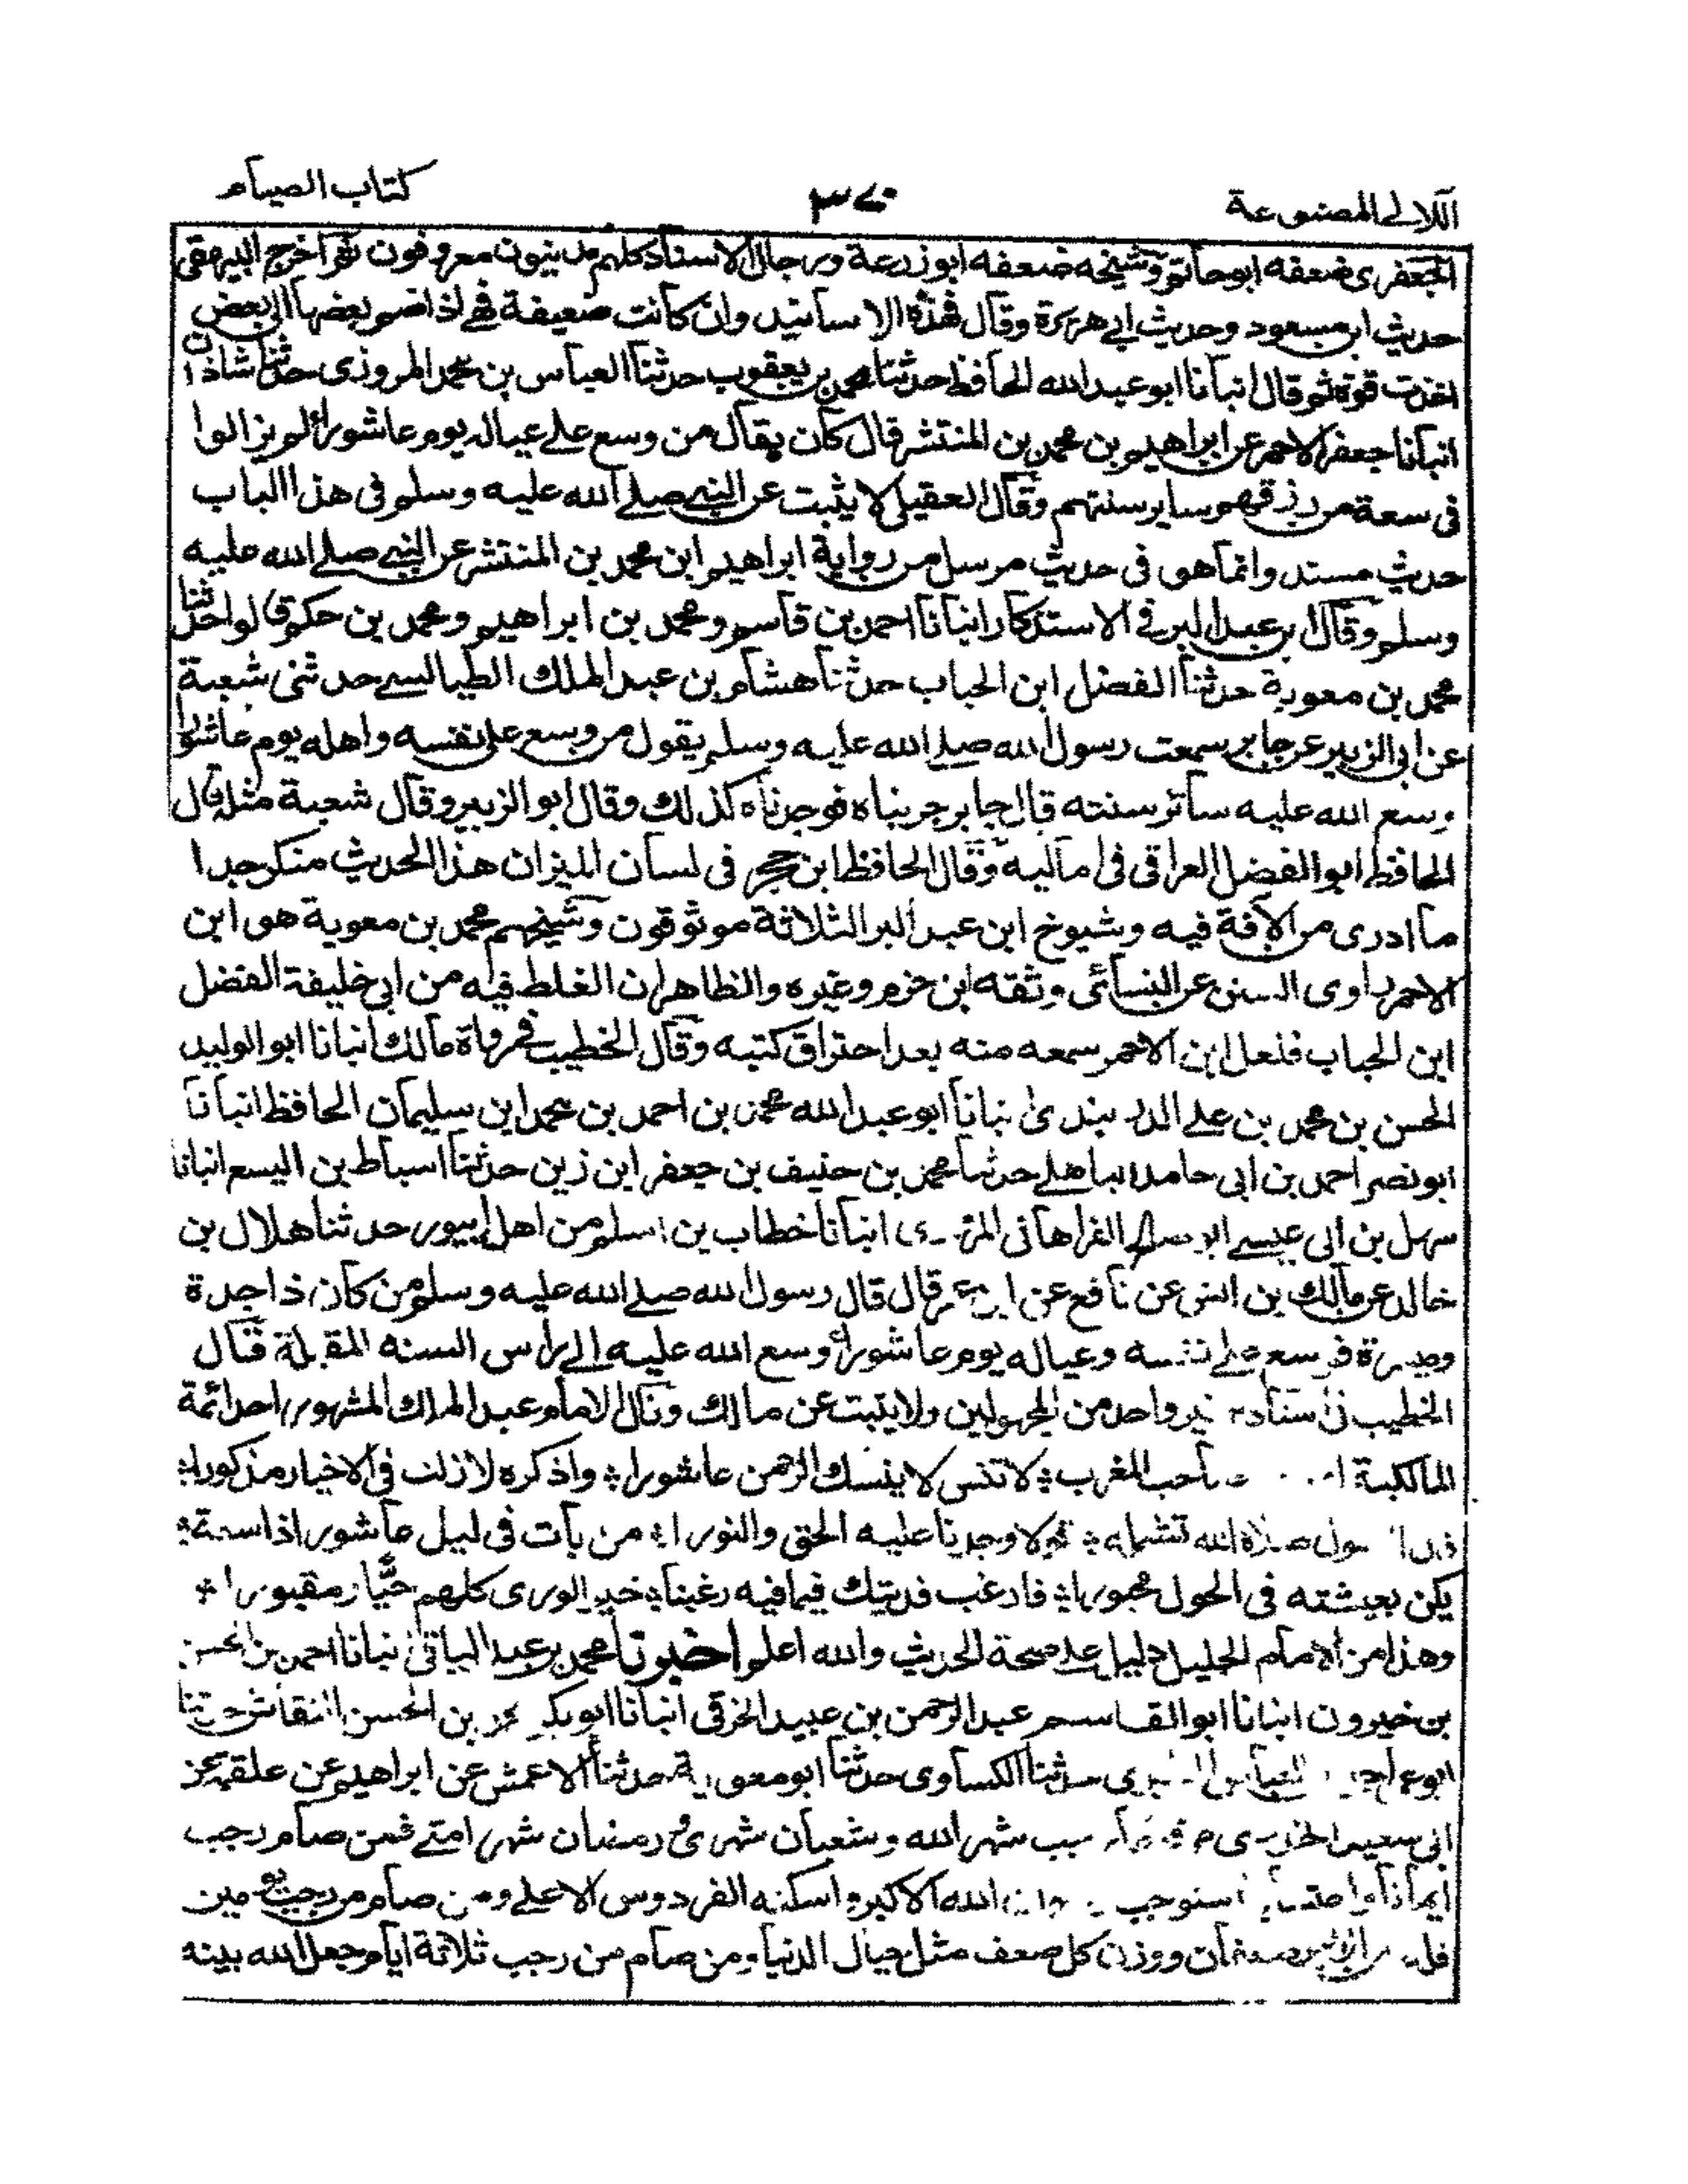 اللالى المصنوعة
٣٧٠
كتاب الصيام
الجعفرى ضعفه ابو حاتم وشيخه ضعفه ابو زرعة ورجال الاسناد كلهم مدنيون معروفون ثم اخرج البيهقى
حديث ابن مسعود وحديث ابى هريرة وقال هذه الاسانيد وان كانت ضعيفة فهى اذا ضم بعضها الى بعض
اخذت قوة ثم قال انبانا ابو عبد الله الحافظ حدثنا محمد بن يعقوب حدثنا العباس بن محمد المروزى حدثنا شاذان
انبانا جعفر الاحمر عن ابراهيم بن محمد بن المنتشر قال كان يقال من وسع على عياله يوم عاشوراء لم يزالوا
فى سعة من رزقهم ساير سنتهم وقال العقيلى لا يثبت عن النبى صلى الله عليه وسلم فى هذا الباب
حديث مسند وانما هو فى حديث مرسل من رواية ابراهيم ابن محمد بن المنتشر عن النبى صلى الله عليه
وسلم وقال ابن عبد البر فى الاستذكار انبانا احمد بن قاسم ومحمد بن ابراهيم ومحمد بن حكم قالوا حدثنا
محمد بن معوية حدثنا الفضل ابن الحباب حدثنا هشام بن عبد الملك الطيالسى حدثنى شعبة
عن ابى الزبير عن جابر سمعت رسول الله صلى الله عليه وسلم يقول من وسع على نفسه واهله يوم عاشوراء
وسع الله عليه سائر سنته قال جابر جربناه فوجدناه كذلك وقال ابو الزبير وقال شعبة مثله قال
الحافظ ابو الفضل العراقى فى اماليه وقال الحافظ ابن حجر فى لسان الميزان هذا الحديث منكر جدا
ما ادرى من الآفة فيه وشيوخ ابن عبد البر الثلاثة موثوقون وشيخهم محمد بن معوية هو ابن
الاحمر راوى السنن عن النسائى وثقه ابن حزم وغيره والظاهر ان الغلط فيه من ابى خليفة الفضل
ابن الحباب فلعل ابن الاحمر سمعه منه بعد احتراق كتبه وقال الخطيب فى رواة مالك انبانا ابو الوليد
الحسن بن محمد بن على الدربندى انبانا ابو عبد الله محمد بن احمد بن محمد ابن سليمان الحافظ انبانا
ابو نصر احمد بن ابى حامد الباهلى حدثنا محمد بن حنيف بن جعفر ابن زين حدثنا اسباط بن اليسع انبانا
سهل بن ابى عيسى ابو صالح الفراهانى انبانا خطاب بن اسلم من اهل ابيورد حدثنا هلال بن
خالد عن مالك بن انس عن نافع عن ابن عمر قال قال رسول الله صلى الله عليه وسلم من كان ذا جدة
وميسرة فوسع على نفسه وعياله يوم عاشوراء وسع الله عليه الى راس السنه المقبلة قال
الخطيب فى اسناده غير واحد من المجهولين ولا يثبت عن مالك وقال الامام عبد الملك المشهور احد ائمة
المالكية صاحب المغرب ؛ لا تنس لا ينسك الرحمن عاشورا ؛ واذكره لازلت فى الاخيار مذكورا ؛
الرسول صلاة الله تشمله ؛ قولا وجدنا عليه الحق والنورا ؛ من بات فى ليل عاشورا ذا سعة ؛
يكن بعيشته فى الحول محبورا ؛ فارغب فديتك فيما فيه رغبنا ؛ خير الورى كلهم حيا ومقبورا ؛
وهذا من الامام الجليل دليل على صحة الحديث والله اعلم اخبرنا محمد بن عبد الباقى انبانا احمد بن الحسن
بن خيرون انبانا ابو القاسم عبد الرحمن بن عبيد الخرقى انبانا ابو بكر محمد بن الحسن النقاش حدثنا
حدثنا الكساوى حدثنا ابو معوية حدثنا الاعمش عن ابراهيم عن علقمة عن
ابى سعيد الخدرى شهر الله وشعبان شهرى ورمضان شهر امتى فمن صام رجب
ايمانا واحتسابا استوجب رضوان الله الاكبر واسكنه الفردوس الاعلى ومن صام من رجب يومين
فله من الاجر ضعفان ووزن كل ضعف مثل جبال الدنيا ومن صام من رجب ثلاثة ايام جعل الله بينه